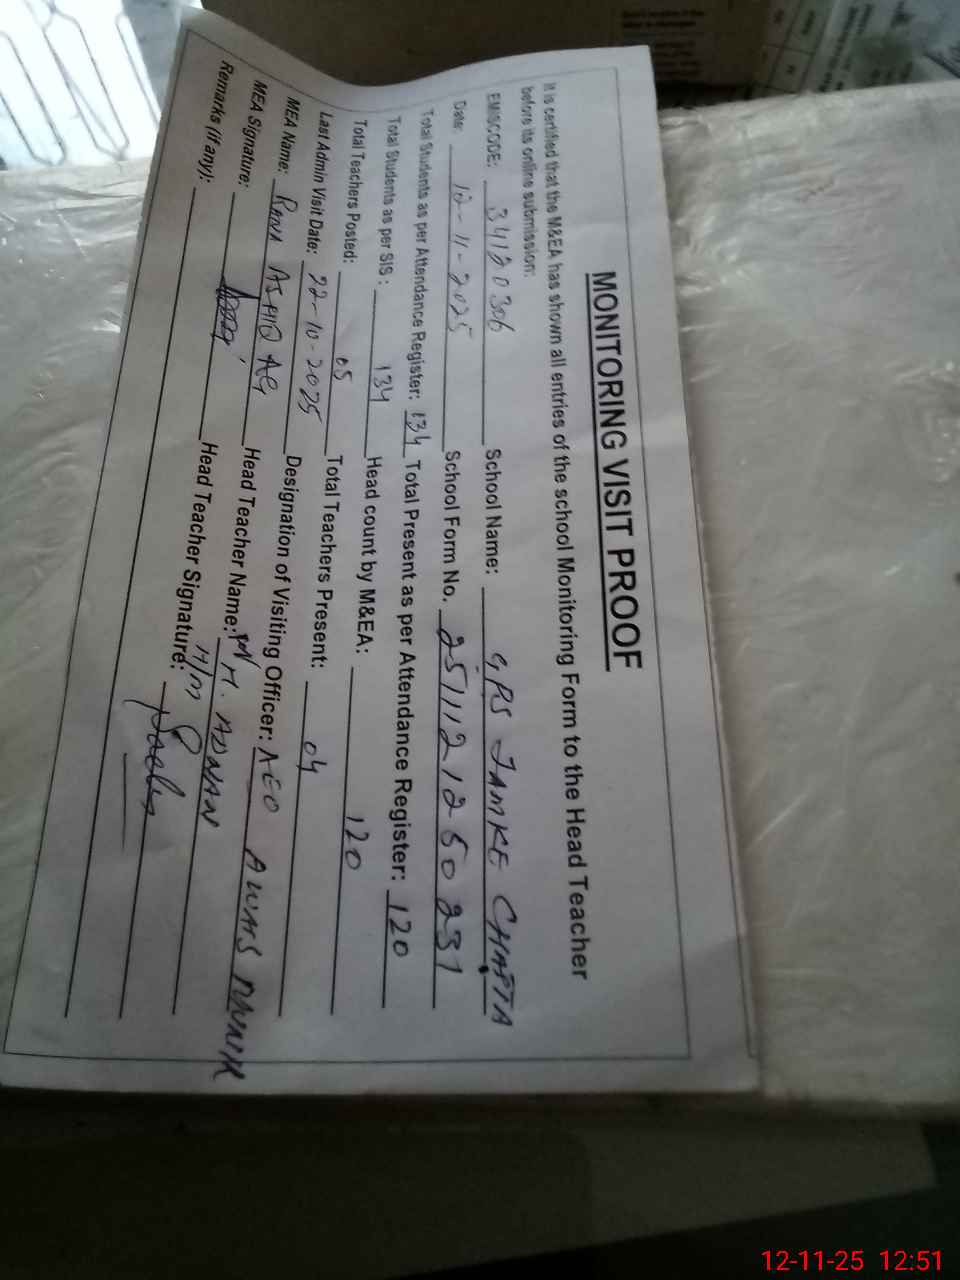 MONITORING VISIT PROOF
It is certified that the M&EA has shown all entries of the school Monitoring Form to the Head Teacher
before its online submission:
EMISCODE: 34120306 School Name: GPS JAMKE CHATTA
Date: 12-11-2025 School Form No. 2511121250231
Total Students as per Attendance Register: 134 Total Present as per Attendance Register: 120
Total Students as per SIS: 134 Head count by M&EA: 120
Total Teachers Posted: 05 Total Teachers Present: 04
Last Admin Visit Date: 22-10-2025 Designation of Visiting Officer: AEO AWAIS MUNIR
MEA Name: RANA ASHIQ Ali Head Teacher Name: M. ADNAN
MEA Signature: Head Teacher Signature: H/M
Remarks (if any):
12-11-25 12:51